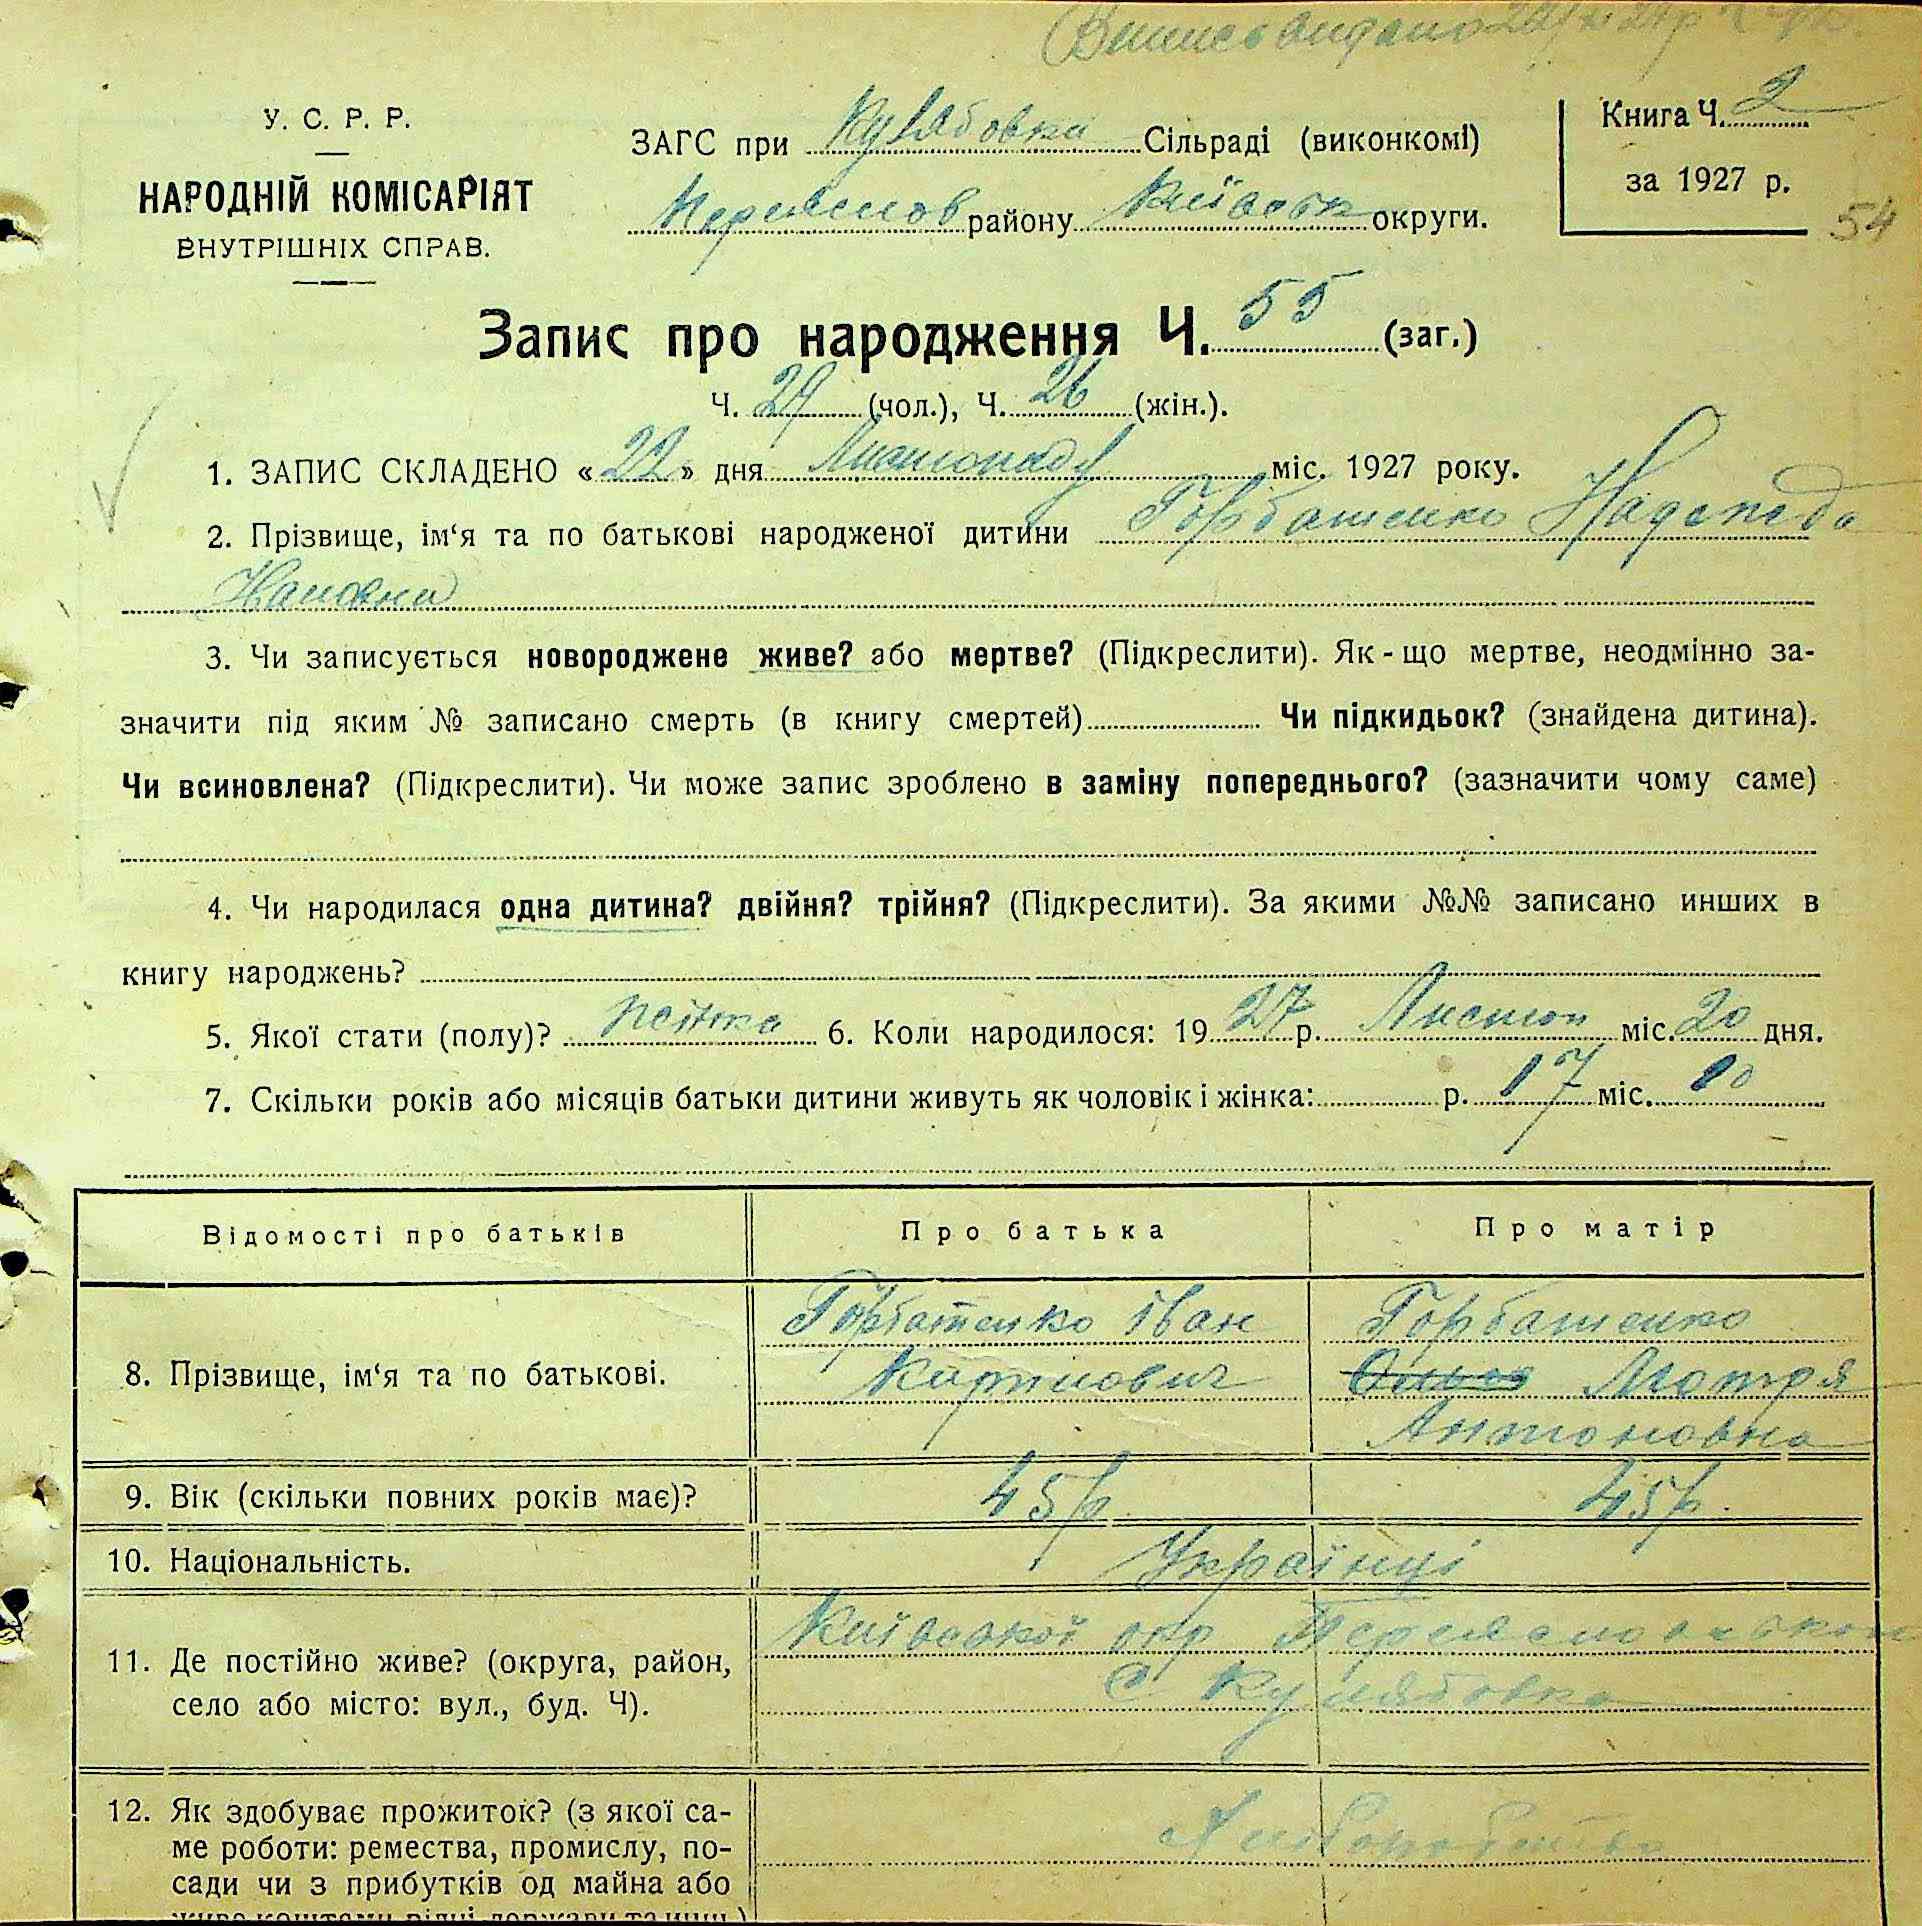 Випись видано
У. С. Р. Р.
НАРОДНІЙ КОМІСАРІЯТ
ВНУТРІШНІХ СПРАВ.
ЗАГС при Кулябовка Сільраді (виконкомі)
Переяслов району Київськ округи.
Книга Ч. 2
за 1927 р.
54
Запис про народження Ч. 55 (заг.)
Ч. 29 (чол.), Ч. 26 (жін.).
1. ЗАПИС СКЛАДЕНО «22» дня Листопаду міс. 1927 року.
2. Прізвище, ім‘я та по батькові народженої дитини Горбатенко Надежда
3. Чи записується новороджене живе? або мертве? (Підкреслити). Як-що мертве, неодмінно за-
значити під яким № записано смерть (в книгу смертей) Чи підкидьок? (знайдена дитина).
Чи всиновлена? (Підкреслити). Чи може запис зроблено в заміну попереднього? (зазначити чому саме)
4. Чи народилася одна дитина? двійня? трійня? (Підкреслити). За якими №№ записано инших в
книгу народжень?
5. Якої стати (полу)? жінка 6. Коли народилося: 1927 р. Листоп міс. 20 дня.
7. Скільки років або місяців батьки дитини живуть як чоловік і жінка: р. 17 міс. 10
Відомості про батьків Про батька Про матір
8. Прізвище, ім‘я та по батькові.
Горбатенко Іван
Карпович
Горбатенко
Мотря
Антоновна
9. Вік (скільки повних років має)? 45 р. 45 р.
10. Національність. Українці
11. Де постійно живе? (округа, район,
село або місто: вул., буд. Ч).
Київської окр Переясловської
С Кулябовка
12. Як здобуває прожиток? (з якої са-
ме роботи: ремества, промислу, по-
сади чи з прибутків од майна або
живе коштами рідні, держави та инш.)
Хліборобство